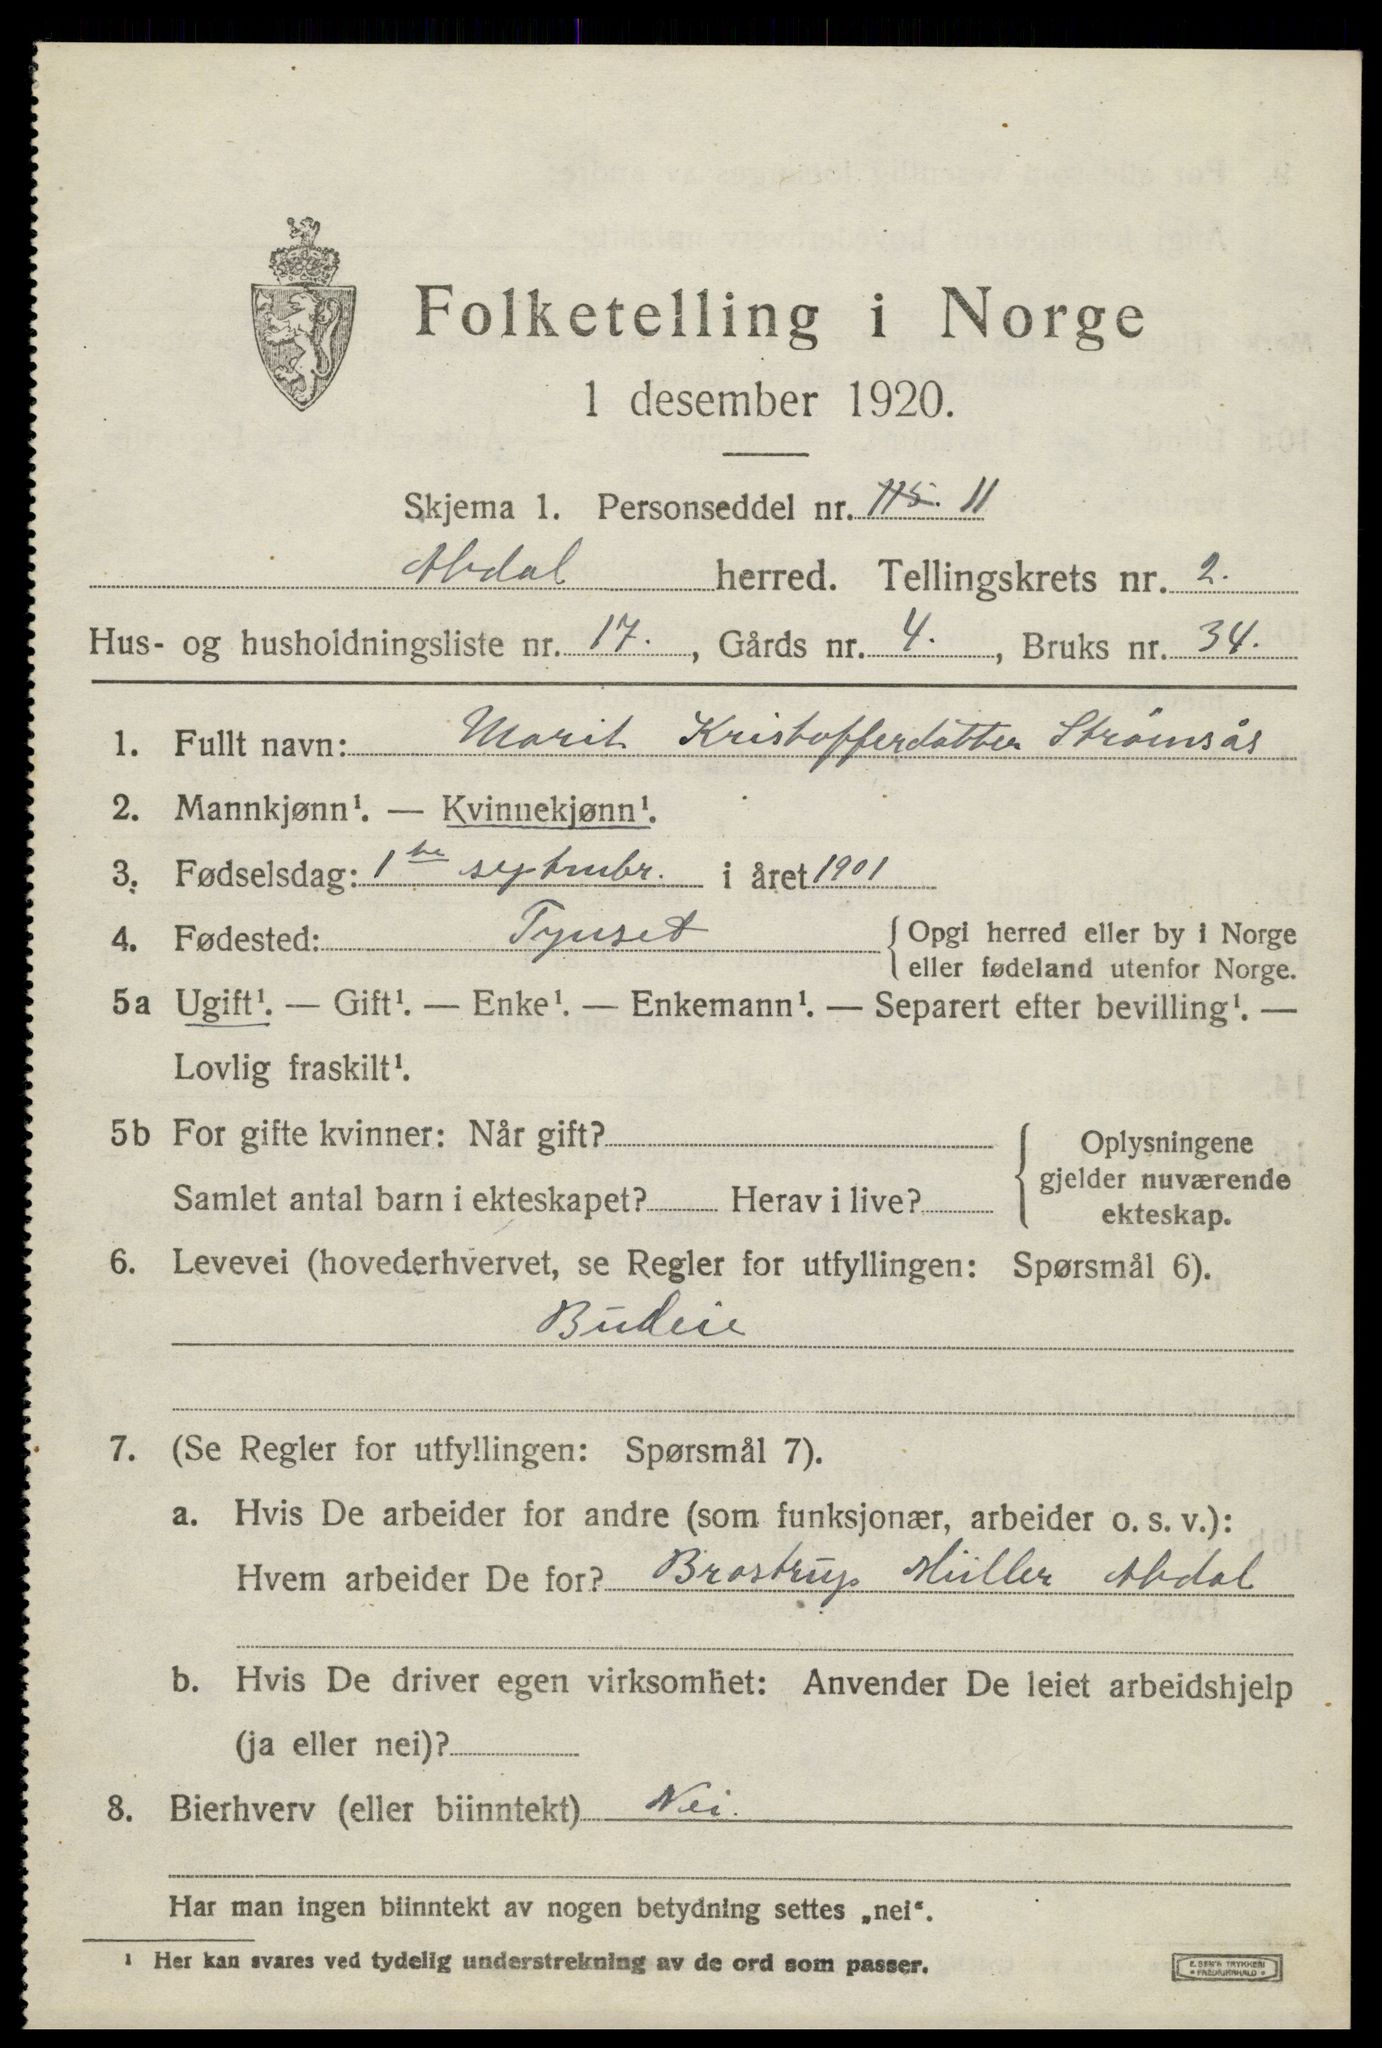 Folketelling i Norge
1 desember 1920.
Skjema 1. Personseddel nr. 115. 11
Alvdal herred. Tellingskrets nr. 2.
Hus- og husholdningsliste nr. 17. , Gårds nr. 4. , Bruks nr. 34.
1. Fullt navn: Marit Kristofferdatter Strømsås
2. Mannkjønn¹. — Kvinnekjønn¹.
3. Fødselsdag: 1ste septmbr. i året 1901
4. Fødested: Tynset { Opgi herred eller by i Norge
eller fødeland utenfor Norge.
5a Ugift¹. — Gift¹. — Enke¹. — Enkemann¹. — Separert efter bevilling¹. —
Lovlig fraskilt¹.
5b For gifte kvinner: Når gift? { Oplysningene
gjelder nuværende
Samlet antal barn i ekteskapet? Herav i live?
ekteskap.
6. Levevei (hovederhvervet, se Regler for utfyllingen: Spørsmål 6).
Budeie
7. (Se Regler for utfyllingen: Spørsmål 7).
a. Hvis De arbeider for andre (som funksjonær, arbeider o. s. v.):
Hvem arbeider De for? Brostrup Müller Alvdal
b. Hvis De driver egen virksomhet: Anvender De leiet arbeidshjelp
(ja eller nei)?
8. Bierhverv (eller biinntekt) Nei.
Har man ingen biinntekt av nogen betydning settes „nei“.
¹ Her kan svares ved tydelig understrekning av de ord som passer.
E. SEM'S TRYKKERI
FREDRIKSHALD